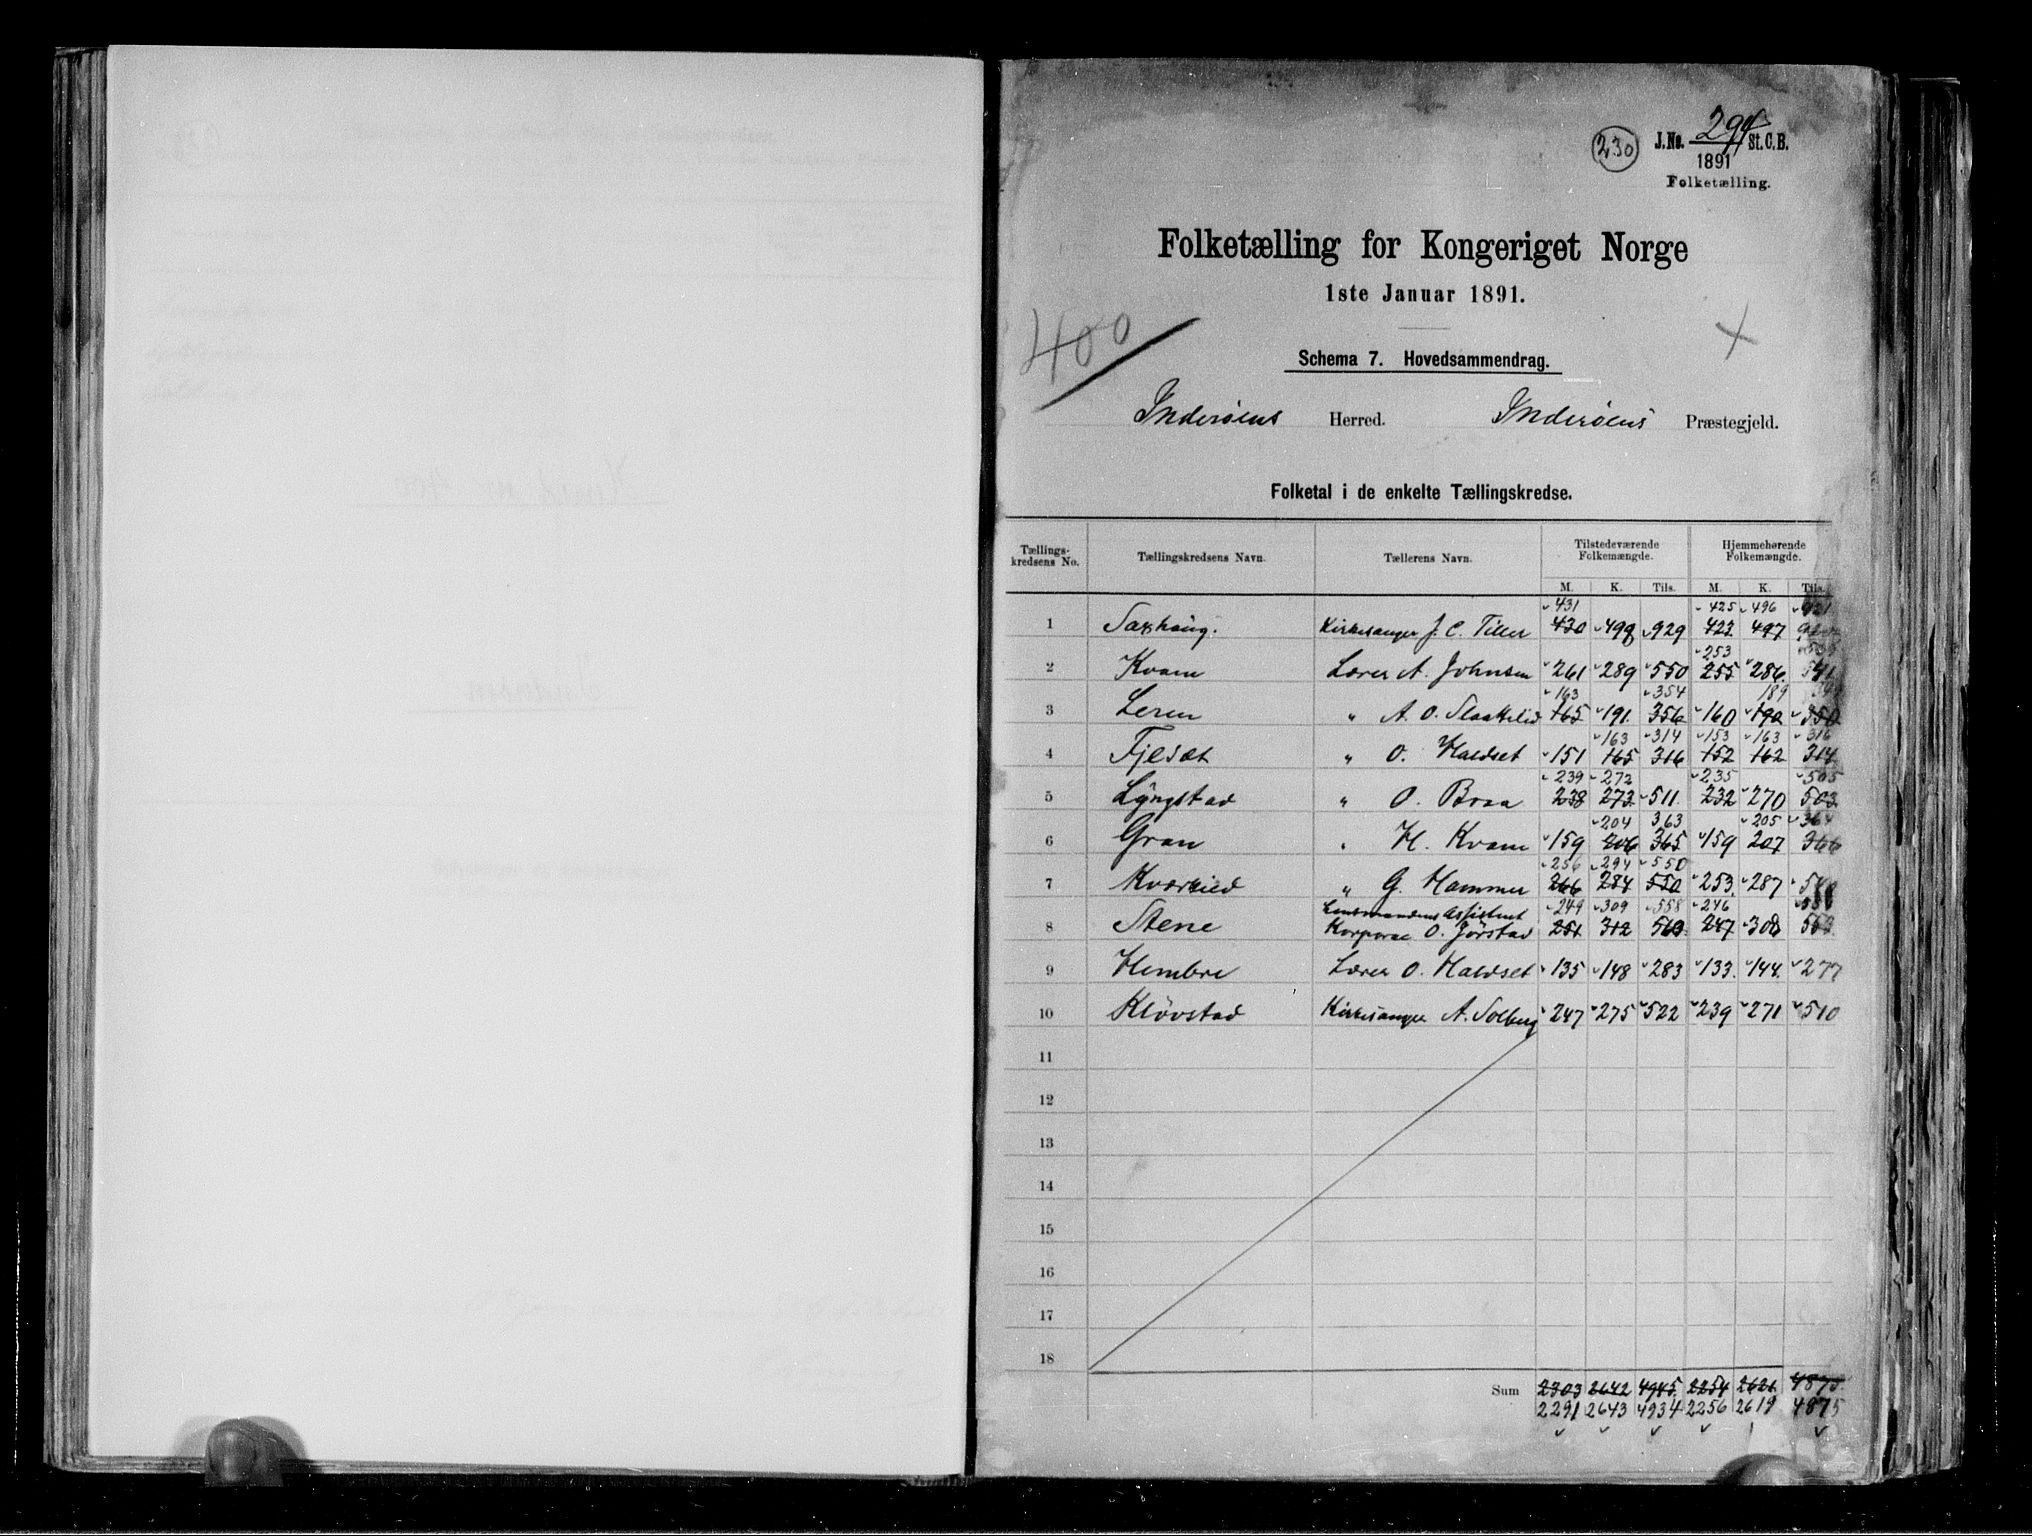 230 J.No. 294 St.C.B.
1891
Folketælling.
Folketælling for Kongeriget Norge
1ste Januar 1891.
400
Schema 7. Hovedsammendrag.
Inderøens Herred. Inderøens Præstegjeld.
Folketal i de enkelte Tællingskredse.
Tællings-kredsens No. Tællingskredsens Navn. Tællerens Navn. Tilstedeværende Folkemængde. Hjemmehørende Folkemængde.
M. K. Tils. M. K. Tils.
431 425 496 921
1 Saxhaug. Kirkesanger J. C. Tiller 430 498 929 423 497
253
2 Kvam Lærer A. Johnsen 261 289 550 255 286 541
163 354 189
3 Leren " A. O. Slaattelid 165 191 356 160 190 350
163 314 153 163 316
4 Fjesæt " O. Haldset 151 165 316 152 162 314
239 272 235 505
5 Lyngstad " O. Braa 238 273 511 232 270 503
204 363 205 364
6 Gran " H. Kvam 159 206 365 159 207 366
256 294 550
7 Kværkild " G. Hammer 266 284 550 253 287
Lensmandens Assistent 249 309 558 246
8 Stene Korporal O. Jørstad 251 312 563 247 308
9 Hembre Lærer O. Haldset 135 148 283 133 144 277
10 Kløvstad Kirkesanger A. Solberg 247 275 522 239 271 510
11
12
13
14
15
16
17
18
Sum 2303 2642 4945 2254 2621 4875
2291 2643 4934 2256 2619 4875